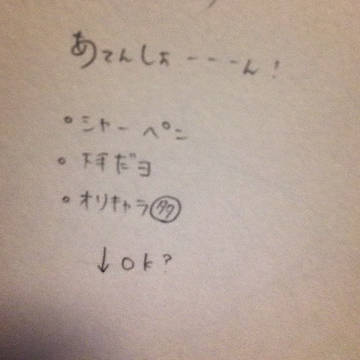 あてんしょーーーん!
・シャーペン
・下手だヨ
・オリキャラ㋟
↓ok?